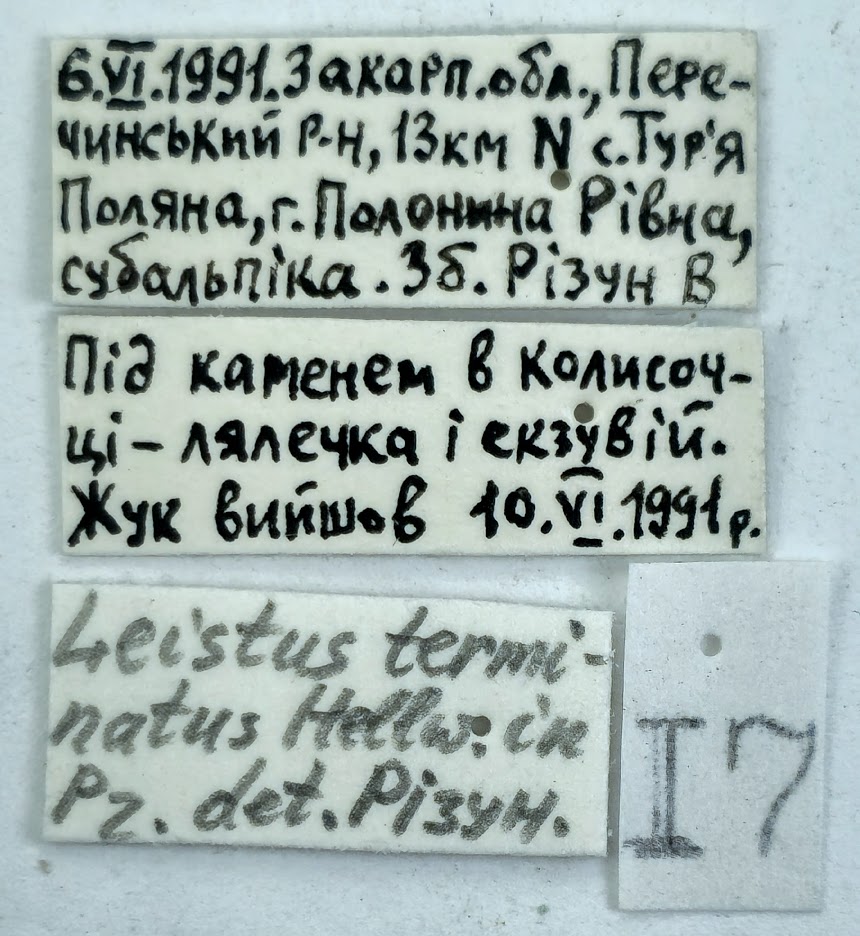 6.VI.1991. Закарп. обл., Пере-
чинський р-н, 13 км N с. Тур'я
Поляна, г. Полонина Рівна,
субальпіка. Зб. Різун В
Під каменем в колисоч-
ці – лялечка і екзувій.
Жук вийшов 10.VI.1991 р.
Leistus termi-
natus Hellw. in
Pz. det. Різун.
I7